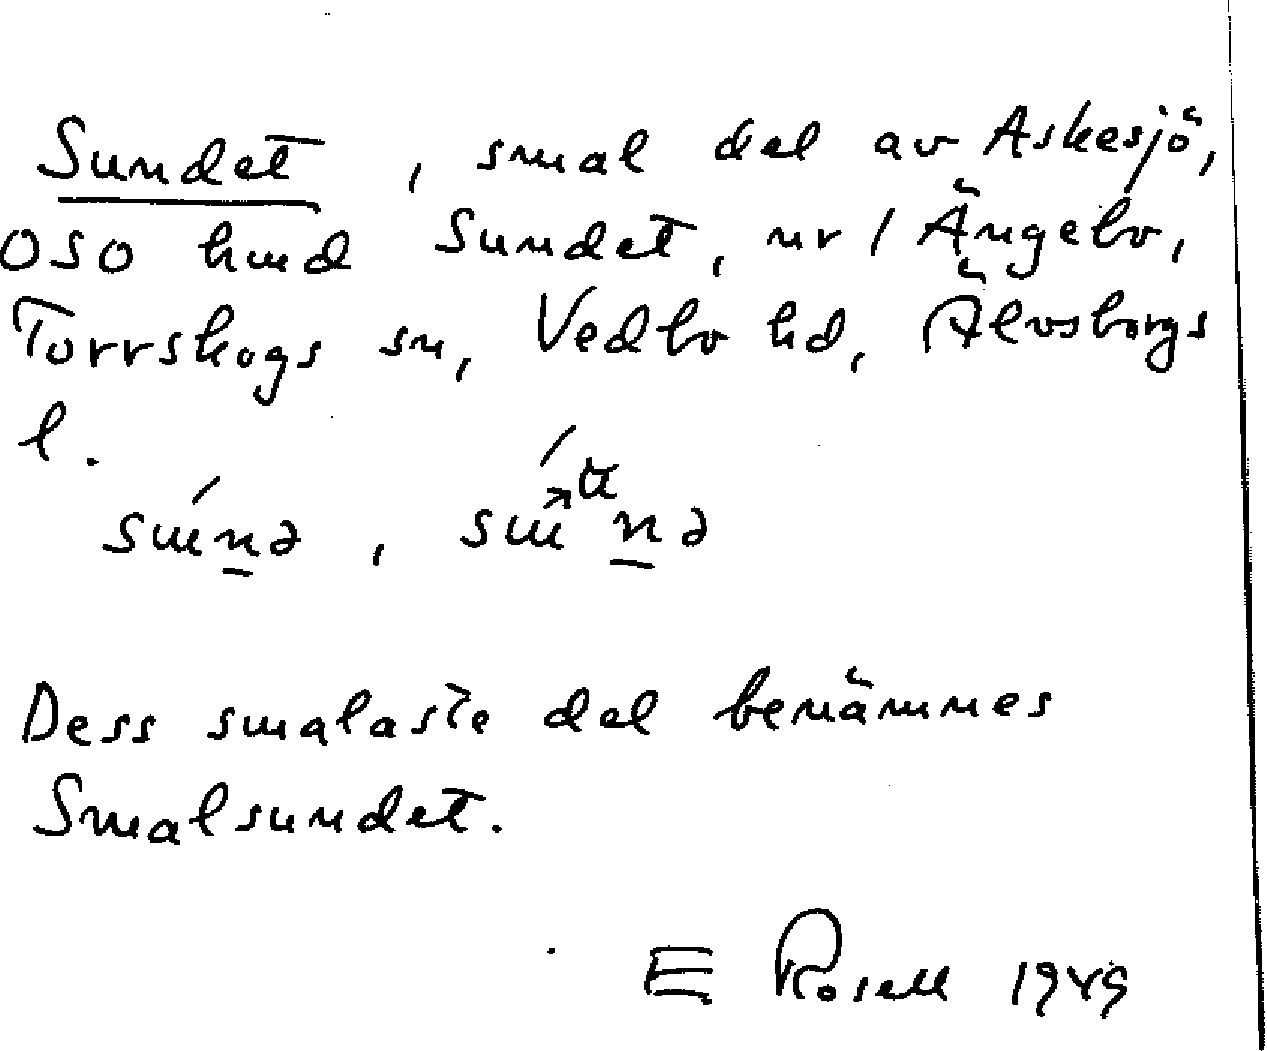 Sundet, smal del av Askesjö,
OSO hmd Sundet, nr 1 Ängebo,
Torrskogs sn, Vedbo hd, Älvsborgs
l.
Dess smalaste del benämnes
Smalsundet.
E Rosell 1949